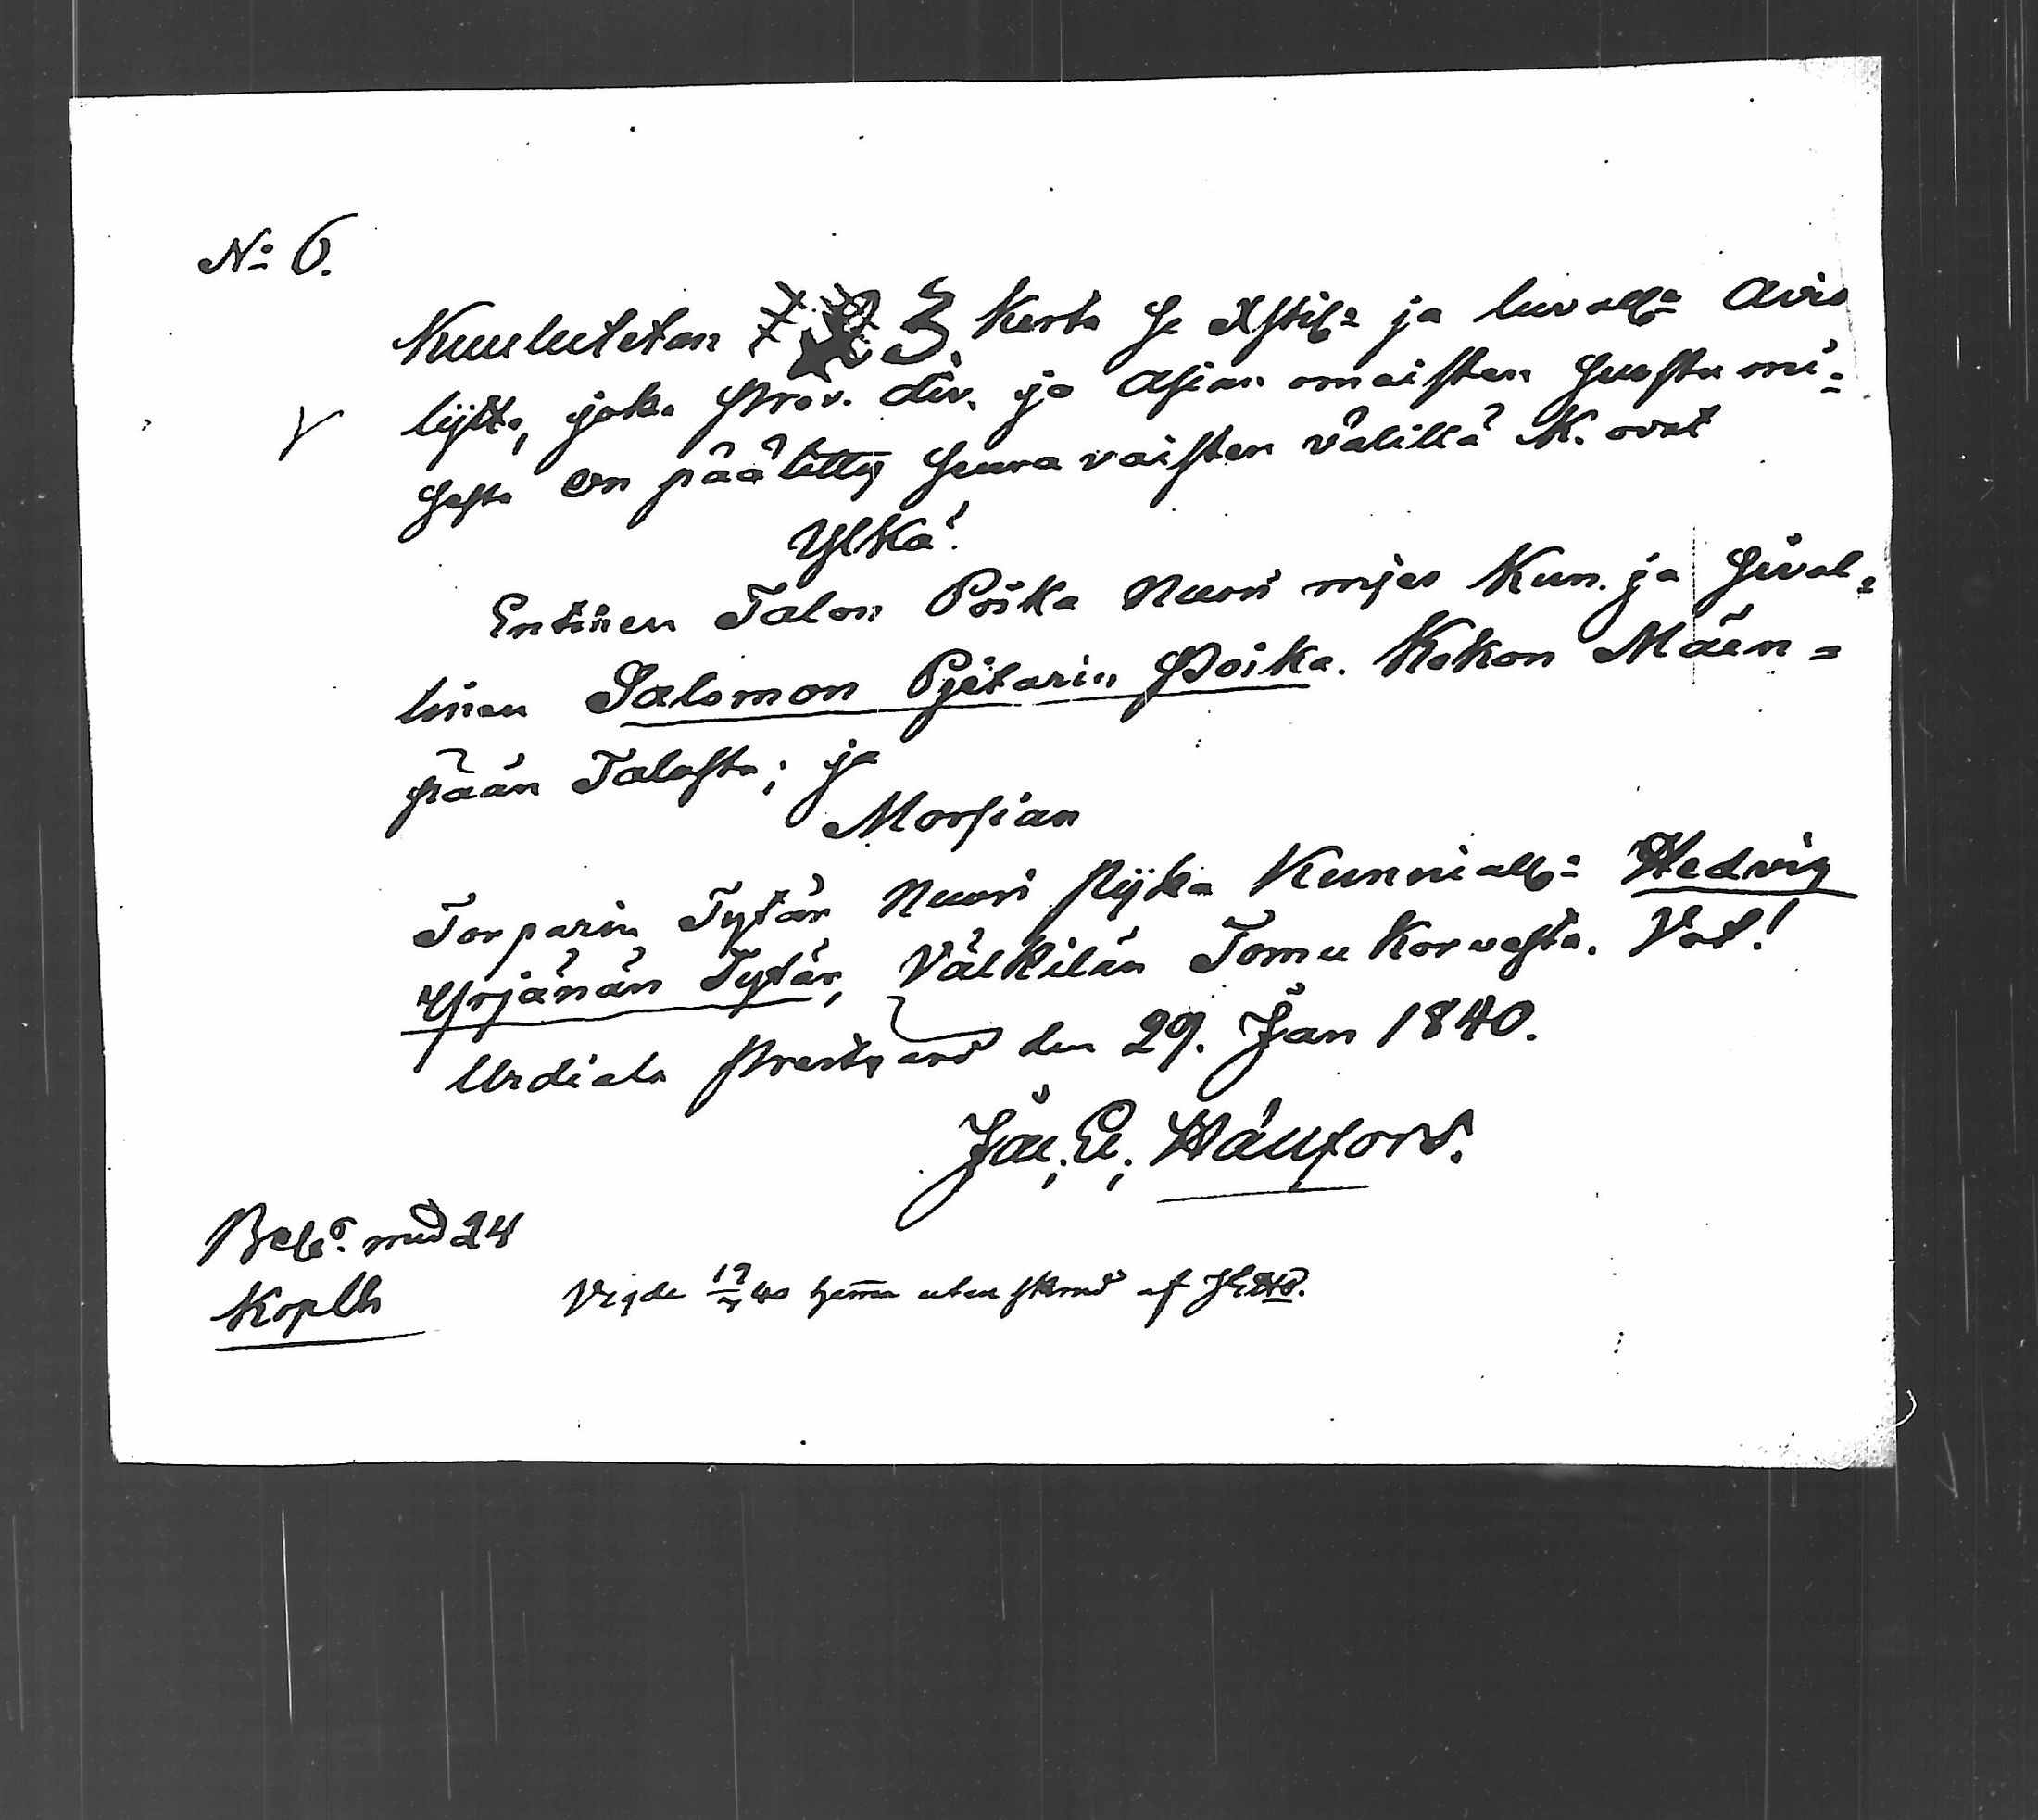 No 6.
Kuulutetan 3. Kerta se Xstil: ja luvall: Avio
lijtto, joka prov. div. ja Asian omaisten suostumi-
sesta on päätetty seuravaisten välillä N. ovat
Ylkä!
Entinen Talon Poika Nuori mjes Kun. ja siväl-
linen Salomon Pjetarin Poika. Kokon Mäen-
pään Talosta; ja
Morsian
Torparin Tytär Nuori pijka Kunniall: Hedvig
Yrjänän Tytär, Välkilän Tomu Korvesta. Vot!
Urdiala prestgård den 29. Jan 1840.
Jac. E. Hällfors.
med 24
Kop Ch
Vigde 17/ 40 hemma utan skrud af JEHs.